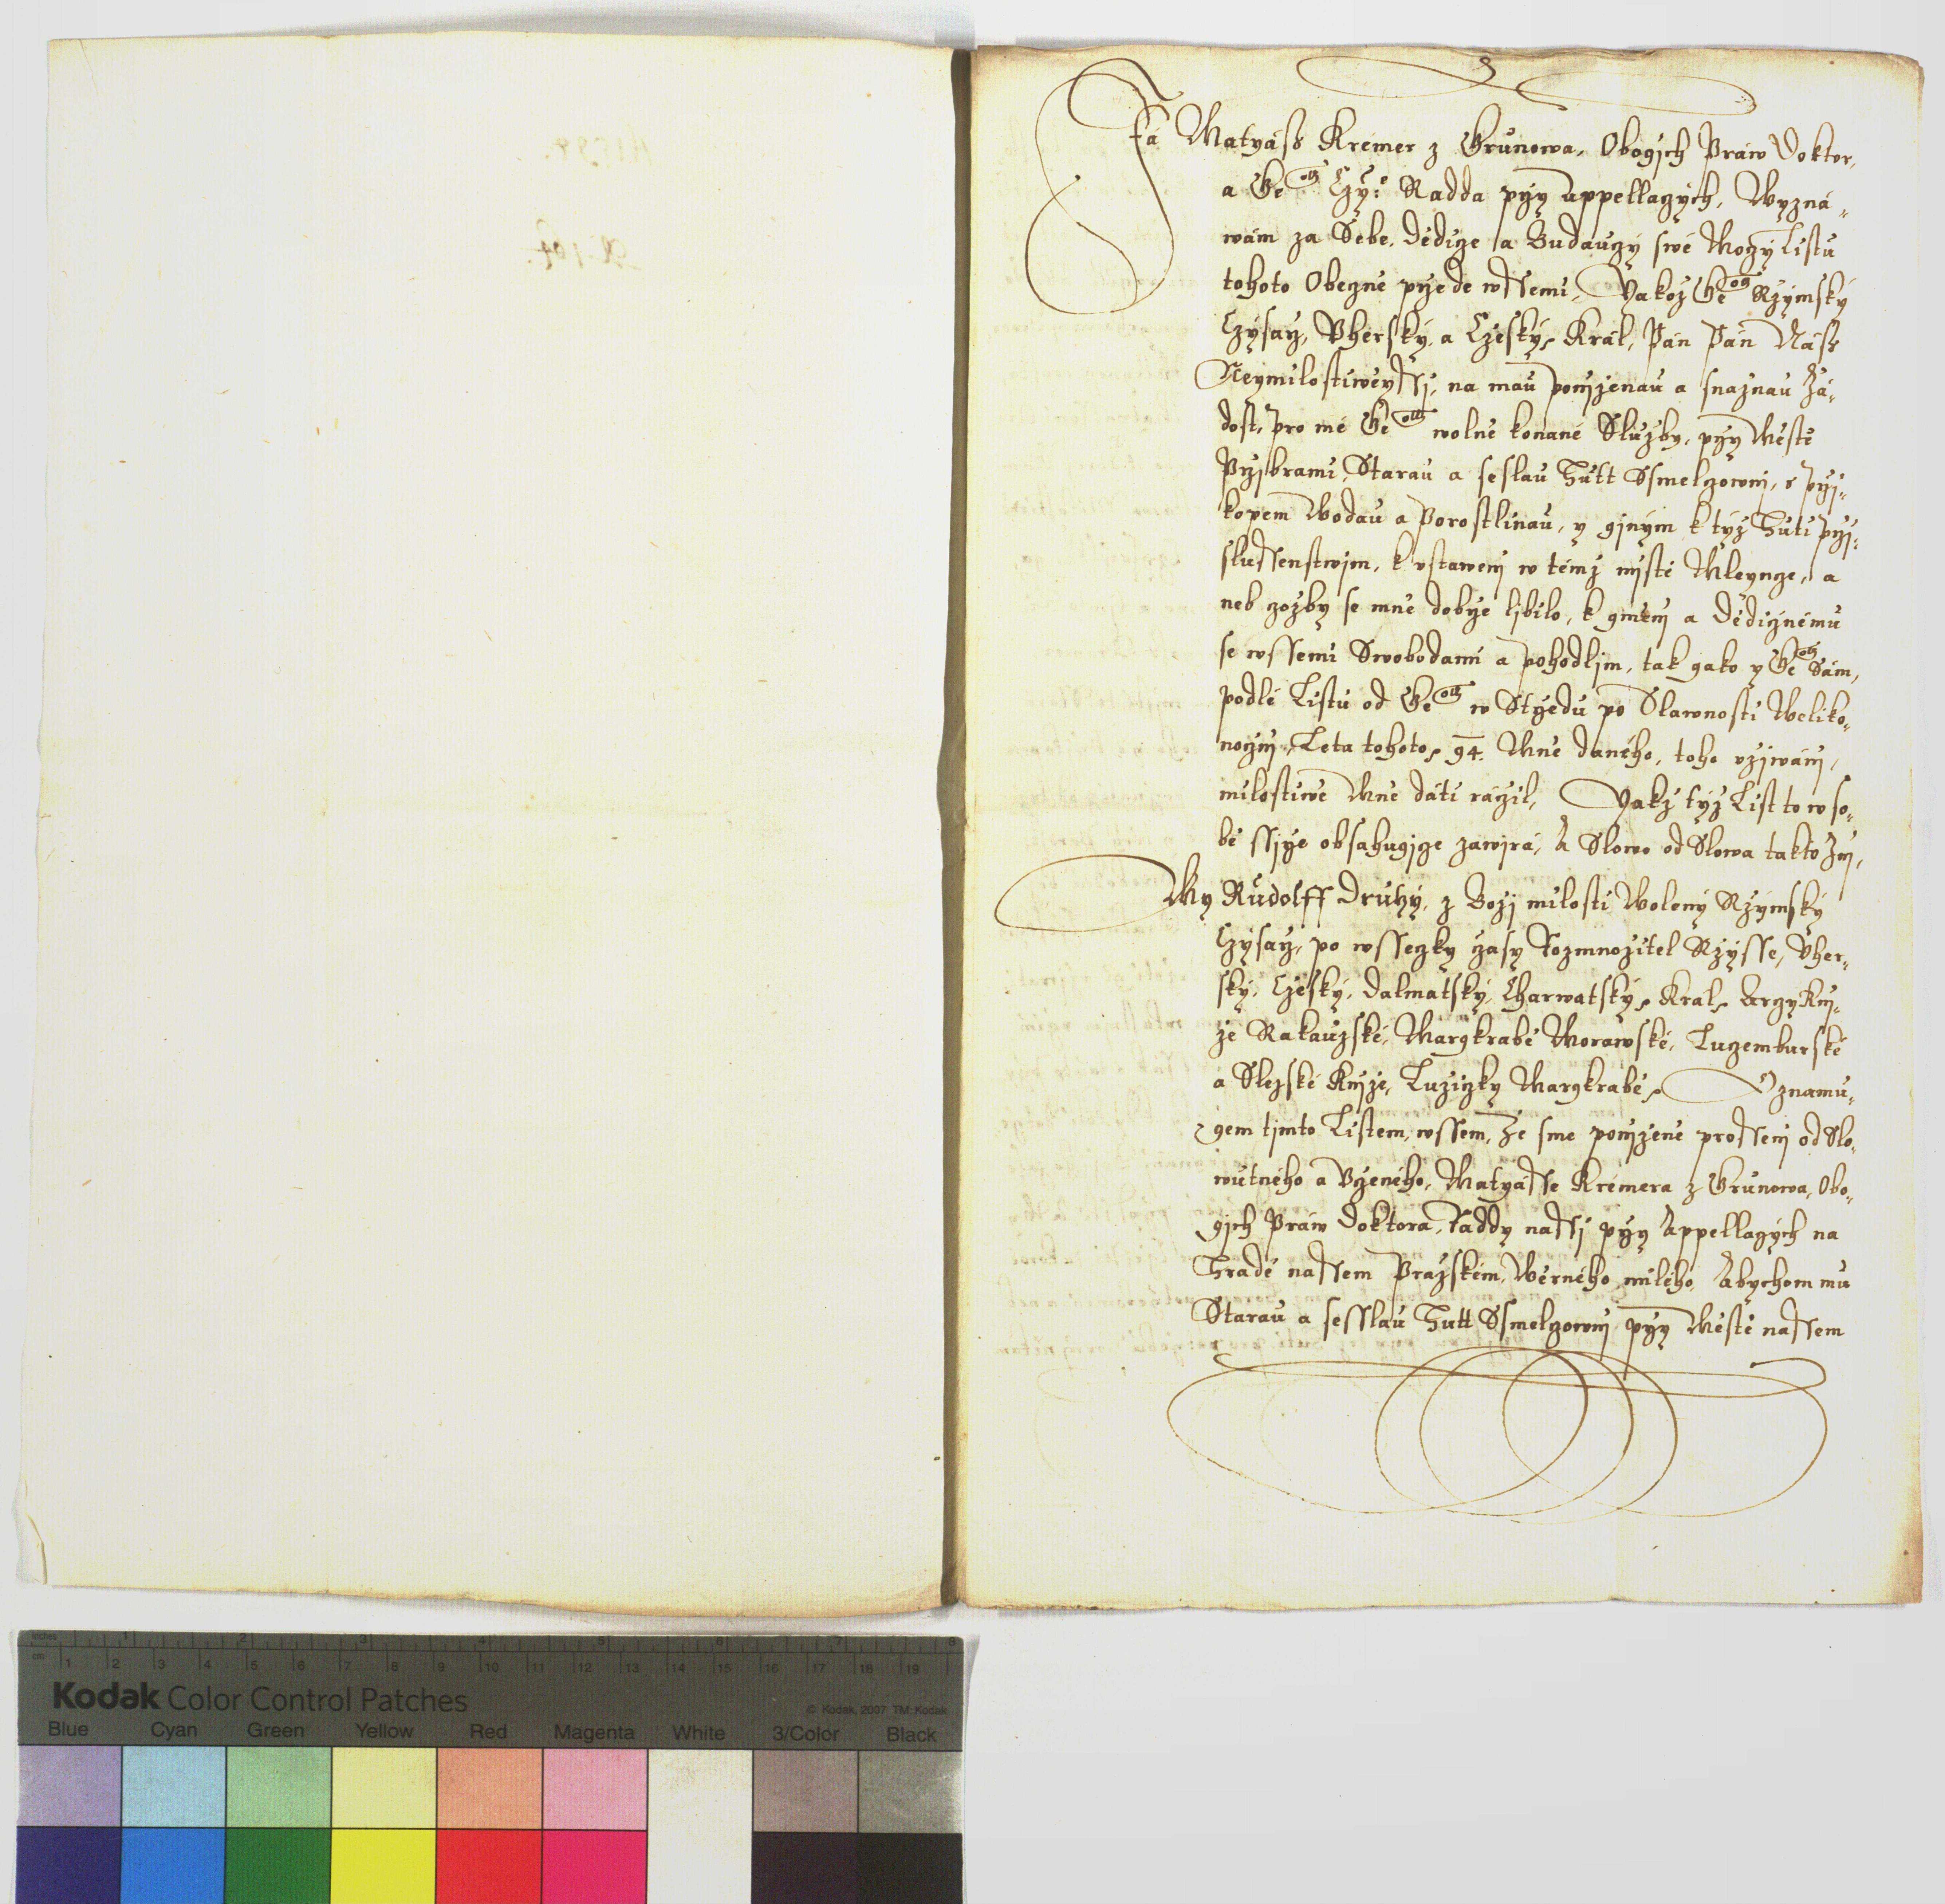 Já Matyáss Kremer z Grunowa, Obogích Práw Doktor,
a Ge<sup>o</sup> Czý: Radda přj Appellacých, Wyzná-
wám za Sebe, Dědice a Budaucý swé Mocý Listu
tohoto Obecně přede wssemi, Yakož Ge Rzýmský
Cýsař, Vherský, a Czeský, Král, Pán Pán Náss
Neymilostiwěyssj, na mau ponjženau a snažnau Žá-
dost, pro mé Ge wolně konané Služby, přj Městě
Přjbrami, Starau a seslau Hutt Ssmelcownj, s přj-
kopem Wodau a Porostlinau, y gjným k týž Huti přj-
slussenstwjm, k vstawenj w témž mjstě Mleynce, a
neb cožby se mně dobře ljbilo, k gměnj a Dědičnému
se wssemi Swobodami a pohodljm, tak gako y Ge Sám,
podlé Listu od Ge w Středu po Slawnosti Weliko-
nočnj, Leta tohoto, 94. Mně daného, toho vžjwánj,
milostiwě Mně dáti ráčil, Yakž týž List to w so-
bě ssjře obsahugjce zawjrá, A Slowo od Slowa takto Znj,
My Rudolff Druhý, z Božj milosti Wolený Rzýmský
Cýsař, po wsseczky časy Rozmnožitel Rzýsse, Vher-
ský, Czeský, Dalmatský, Charwatský, Král, Arcy Knj-
že Rakauzské, Margkrabě Morawské, Lucemburské
a Slezské Knjže, Lužicky Margkrabě, Oznamu-
gem tjmto Listem, wssem, Že sme ponjženě prossenj od Slo-
wutného a Včeného, Matyásse Kremera z Grunowa, Obo-
gjch Práw Doktora, Raddy nassj přj Appellacých na
Hradě nassem Pražském, Wěrného milého, Abychom mu
Starau a sesslau Hutt Ssmelcownj přj Městě nassem
Kodak Color Control Patches
© Kodak, 2007 TM: Kodak
Blue Cyan Green Yellow Red Magenta White 3/Color Black